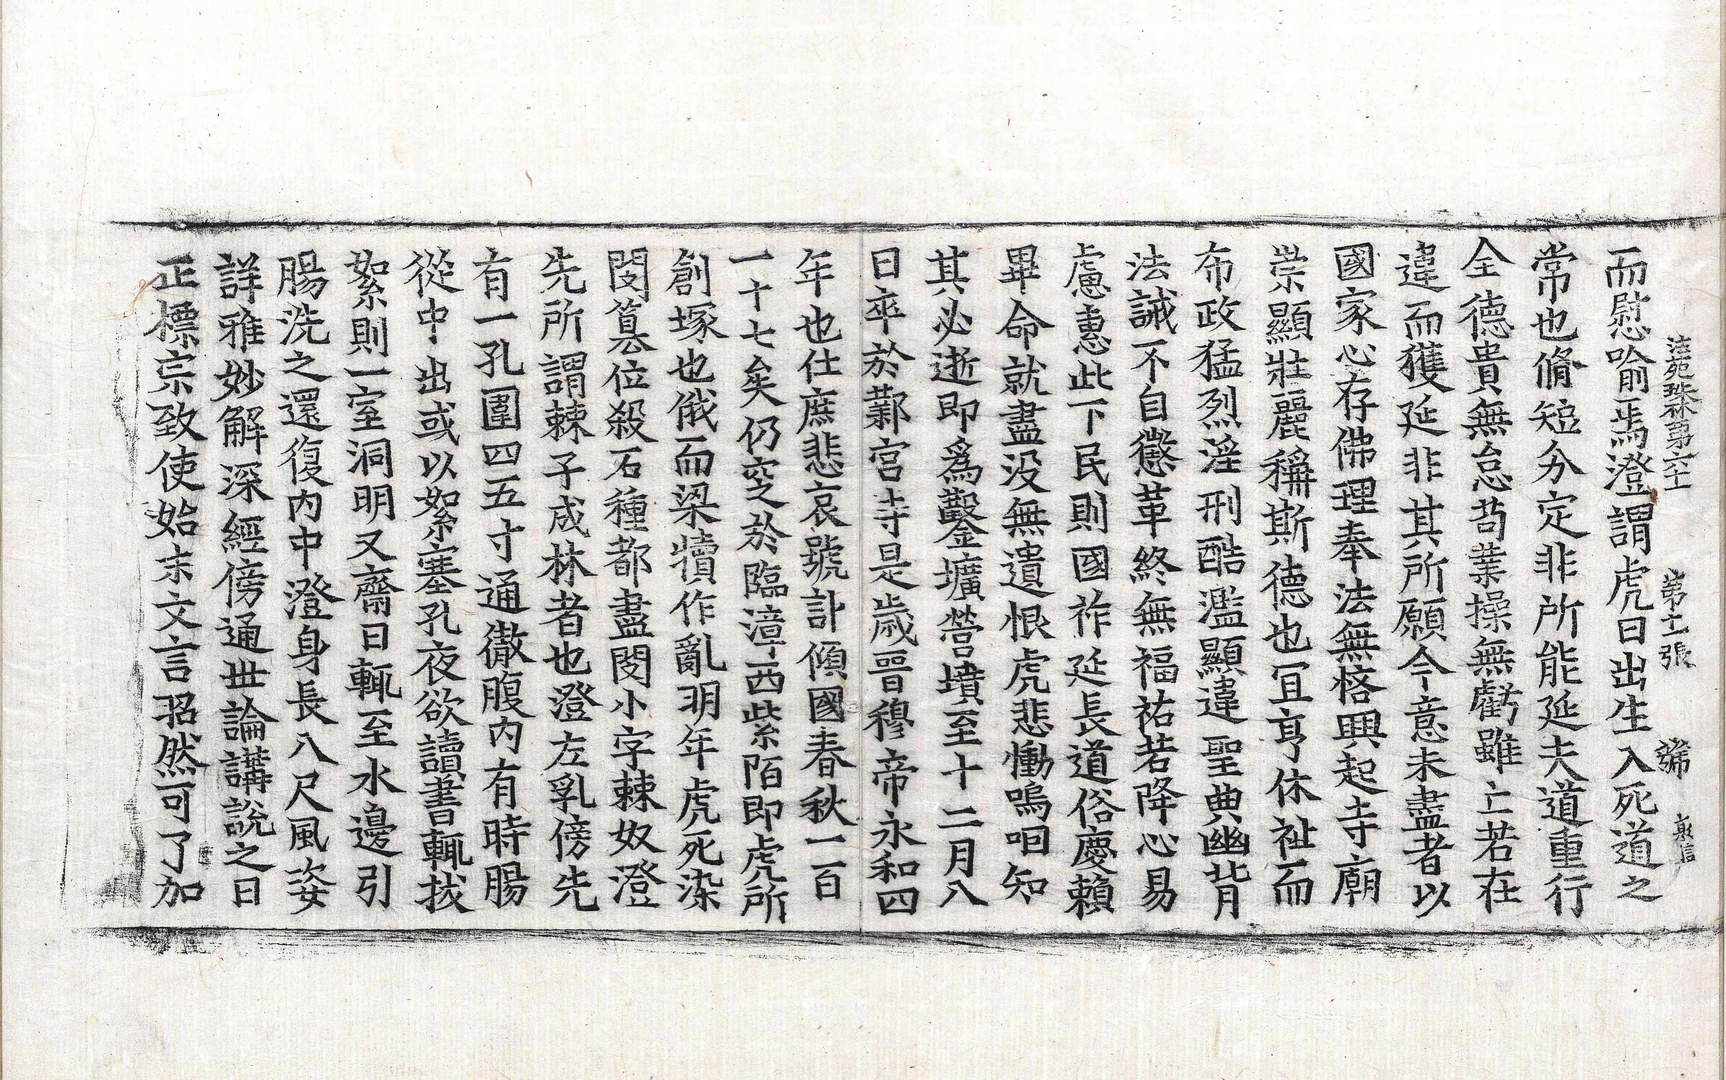 法苑珠林第六十一 第十七張 號
而慰喻焉澄謂虎曰出生入死道之
常也脩短分定非所能延夫道重行
全德貴無怠苟業操無虧雖亡若在
違而獲延非其所願今意未盡者以
國家心存佛理奉法無悋興起寺廟
崇顯壯麗稱斯德也宜享休祉而
布政猛烈淫刑酷濫顯違聖典幽背
法誡不自懲革終無福祐若降心易
慮惠此下民則國祚延長道俗慶賴
畢命就盡没無遺恨虎悲慟嗚咽知
其必逝即爲鑿壙營墳至十二月八
日卒於鄴宮寺是歲晉穆帝永和四
年也仕庶悲哀號訃傾國春秋一百
一十七矣仍窆於臨漳西紫陌即虎所
創塚也俄而梁犢作亂明年虎死染
閔篡位殺石種都盡閔小字棘奴澄
先所謂棘子成林者也澄左乳傍先
有一孔圍四五寸通徹腹内有時腸
從中出或以絮塞孔夜欲讀書輒拔
絮則一室洞明又齋日輒至水邊引
腸洗之還復内中澄身長八尺風姿
詳雅妙解深經傍通世論講説之日
正標宗致使始末文言昭然可了加